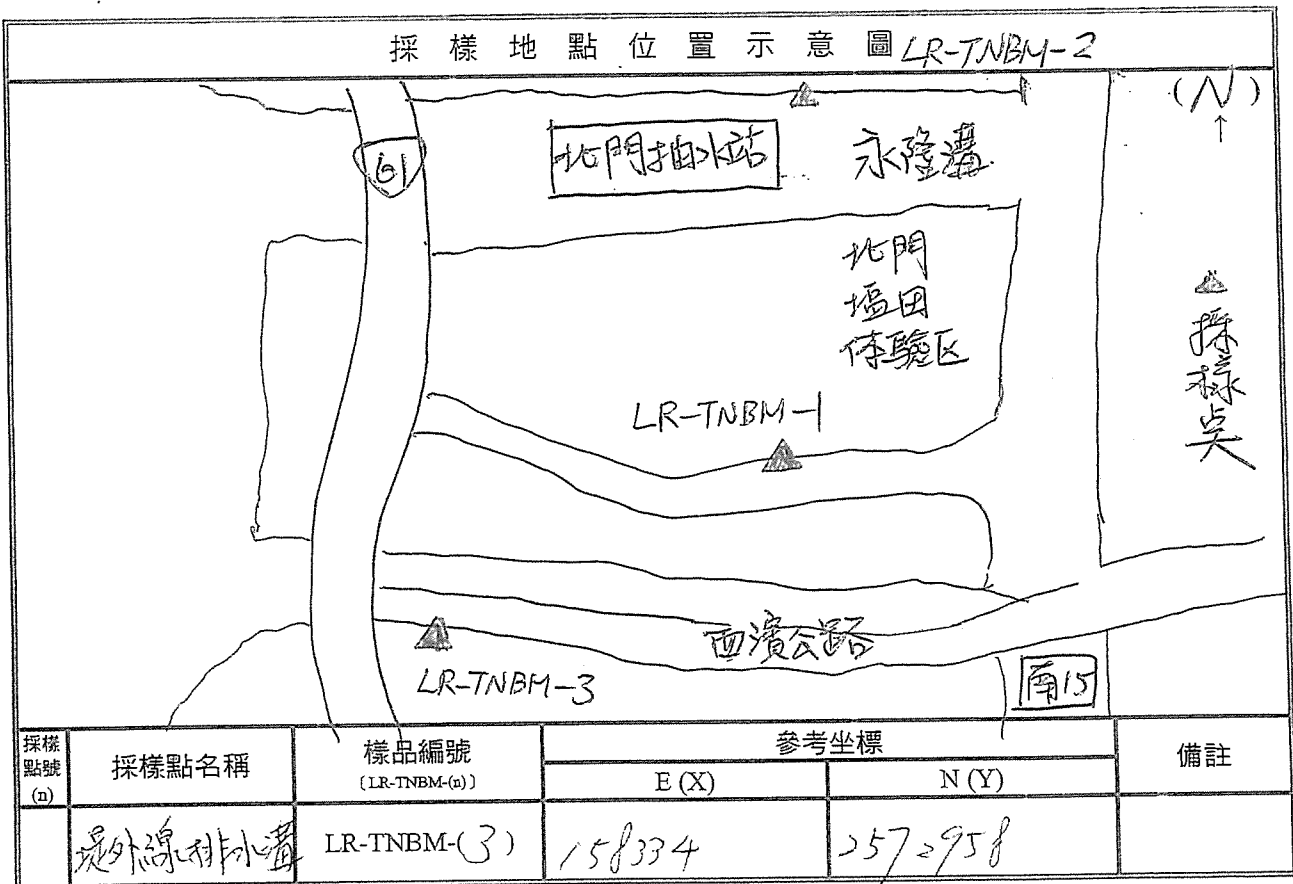 採樣地點位置示意圖 LR-TNBM-2
(N)
↑
61
北門抽水站
永隆溝
北門
塩田
体驗区
採樣点
LR-TNBM-1
西濱公路
LR-TNBM-3
南15
採樣點號(n)
採樣點名稱
樣品編號
〔LR-TNBM-(n)〕
參考坐標
E (X)
N (Y)
備註
堤外線排水溝
LR-TNBM-(3)
158334
2572958